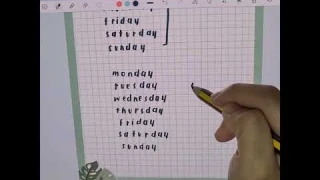 friday
saturday
sunday
monday
tuesday
wednesday
thursday
friday
saturday
sunday